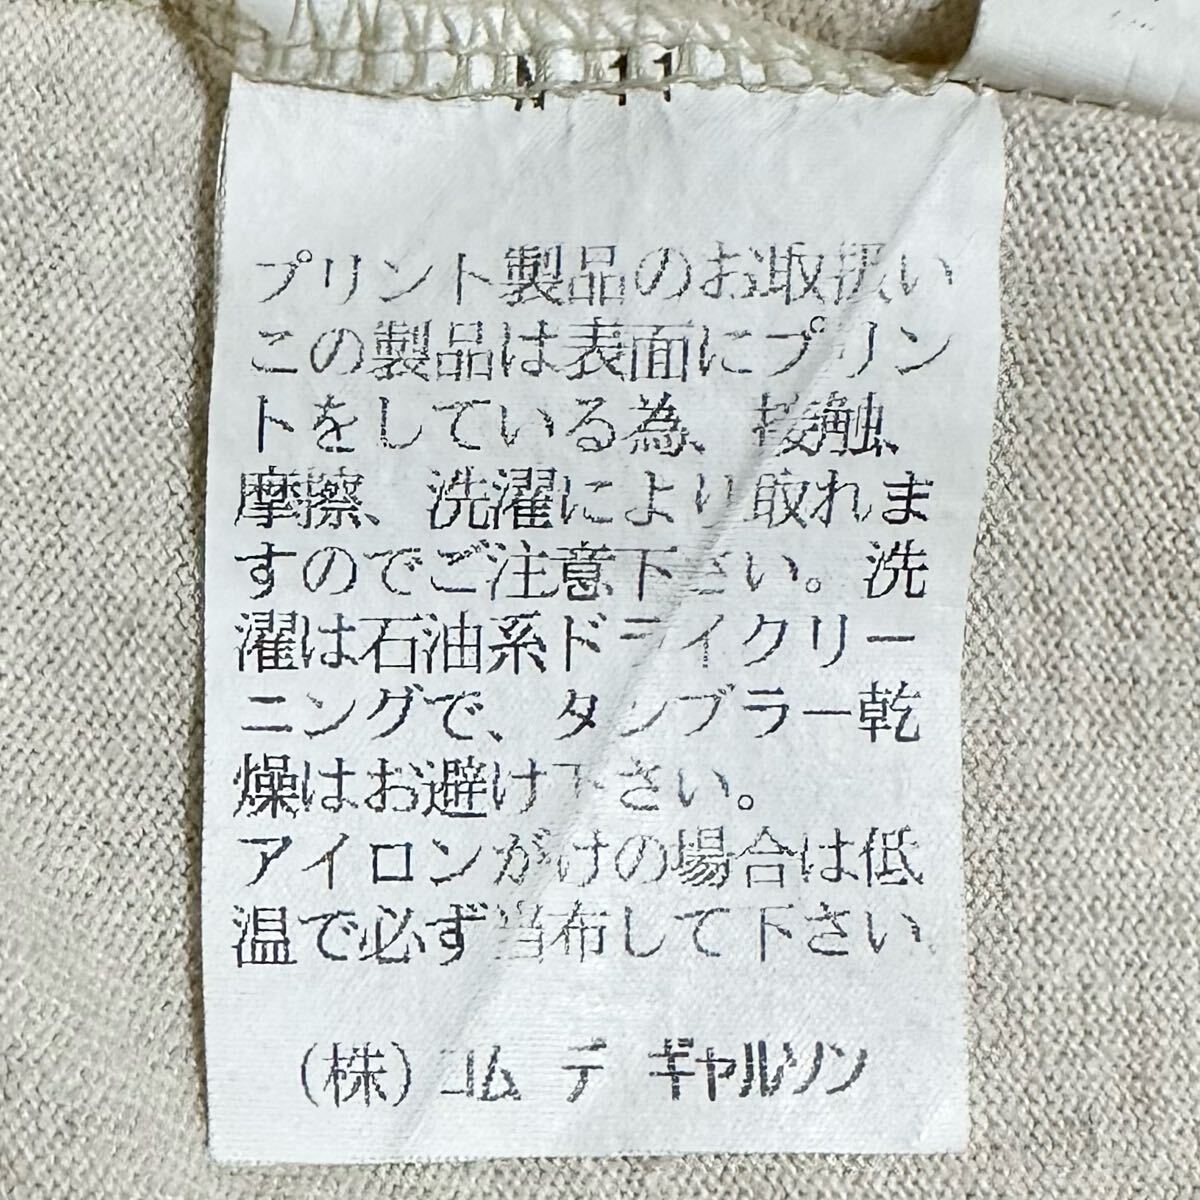 プリント製品のお取扱い
この製品は表面にプリン
トをしている為、接触、
摩擦、洗濯により取れま
すのでご注意下さい。洗
濯は石油系ドライクリー
ニングで、タンブラー乾
燥はお避け下さい。
アイロンがけの場合は低
温で必ず当布して下さい。
(株)コム デ ギャルソン